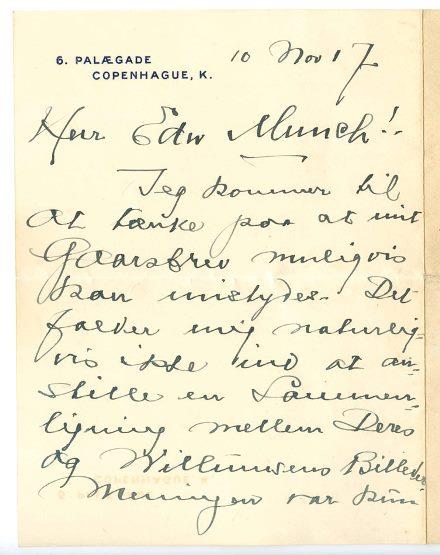 6. PALÆGADE
COPENHAGUE, K.
10 Nov 17
Herr Edw Munch!
Jeg kommer til
at tænke paa at mit
Gaarsbrev muligvis
kan mistydes. Det
falder mig naturlig-
vis ikke ind at an-
stille en Sammen-
ligning mellem Deres
og Willumsens Billeder
Meningen var kun